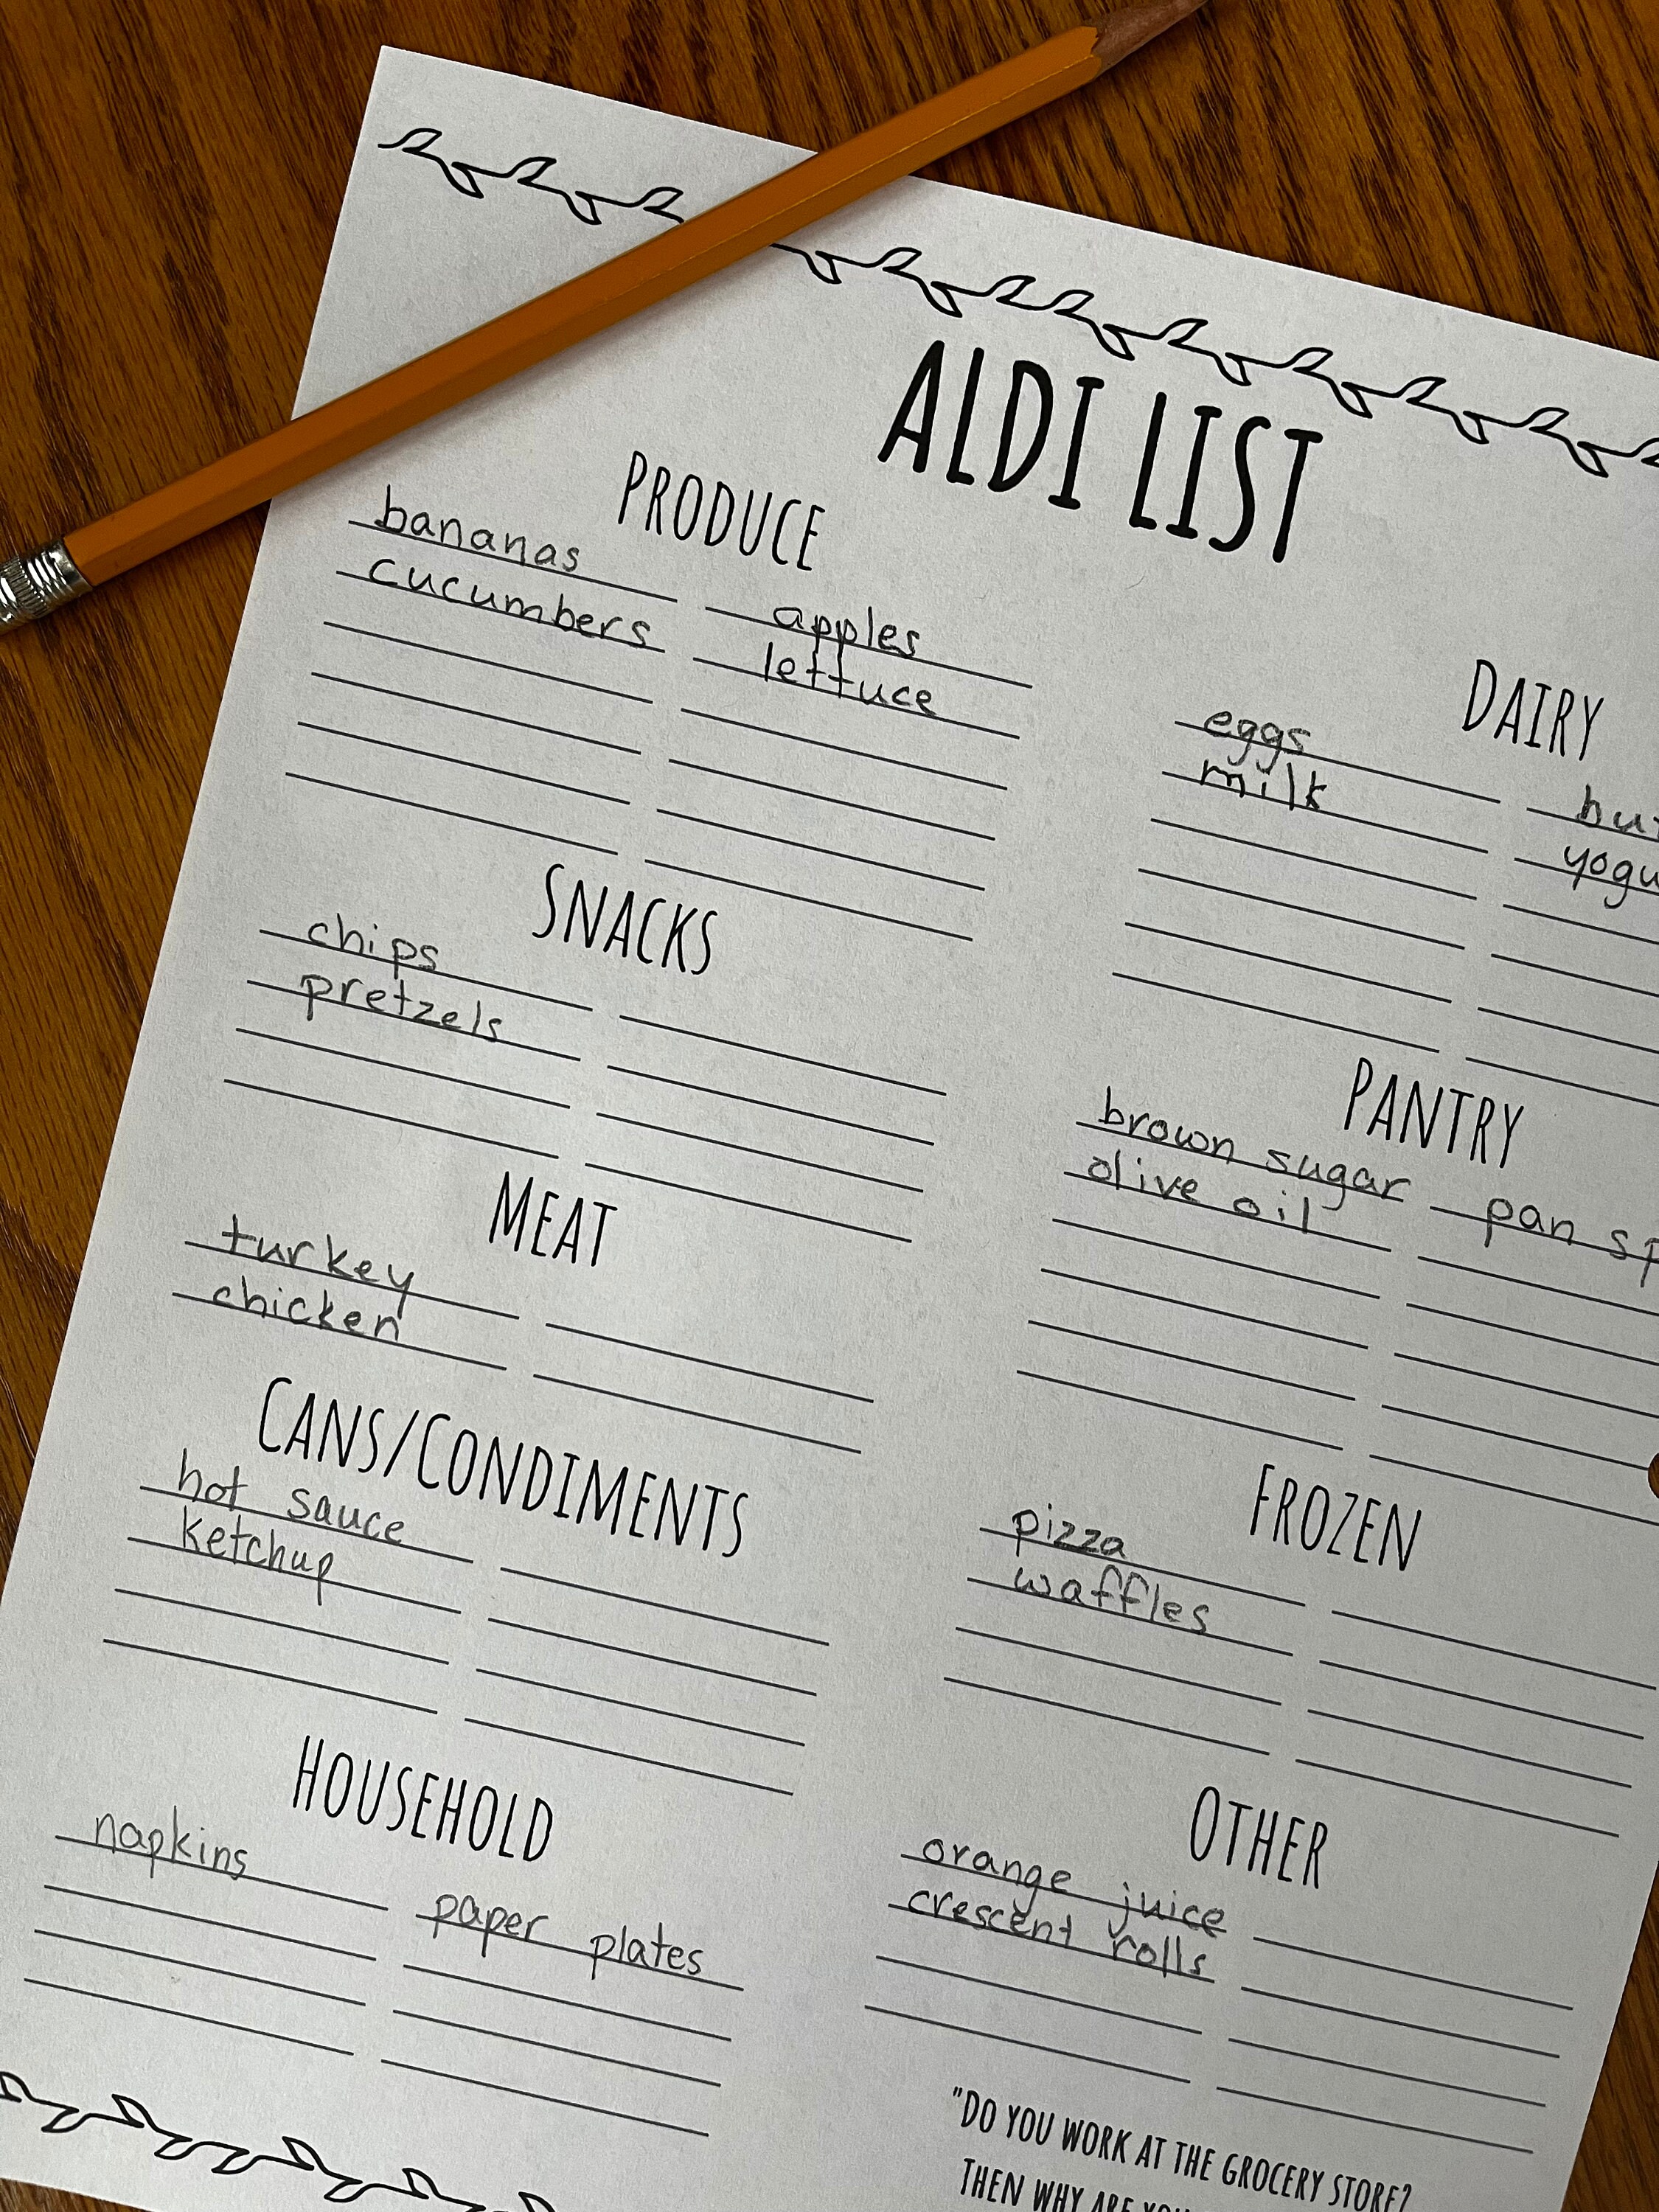 ALDI LIST
PRODUCE
bananas apples
cucumbers lettuce
SNACKS
chips
pretzels
MEAT
turkey
chicken
CANS/CONDIMENTS
hot sauce
ketchup
HOUSEHOLD
napkins paper plates
DAIRY
eggs
milk
PANTRY
brown sugar pan
olive oil
FROZEN
pizza
waffles
OTHER
orange juice
crescent rolls
"DO YOU WORK AT THE GROCERY STORE?
THEN WHY ARE